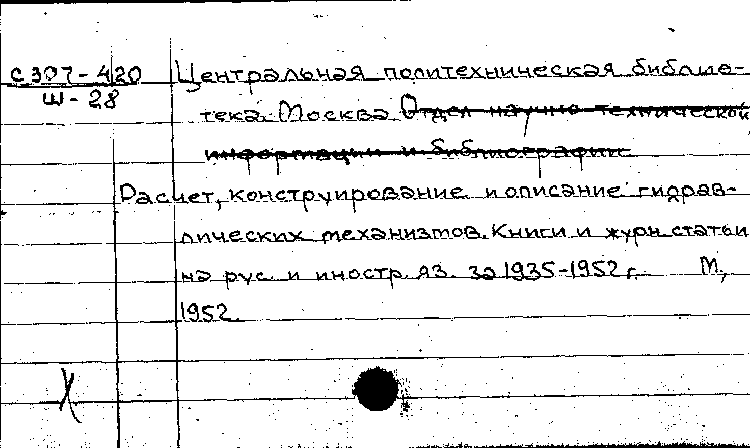 С307-420 Центральная политехническая библио-
Ш-28 тека. Москва Отдел научно-технической
информации и библиографии.
Расчет, конструирование и описание гидрав-
лических механизмов. Книги и журн. статьи
на рус. и иностр. яз. за 1935-1952 г. М.,
1952.